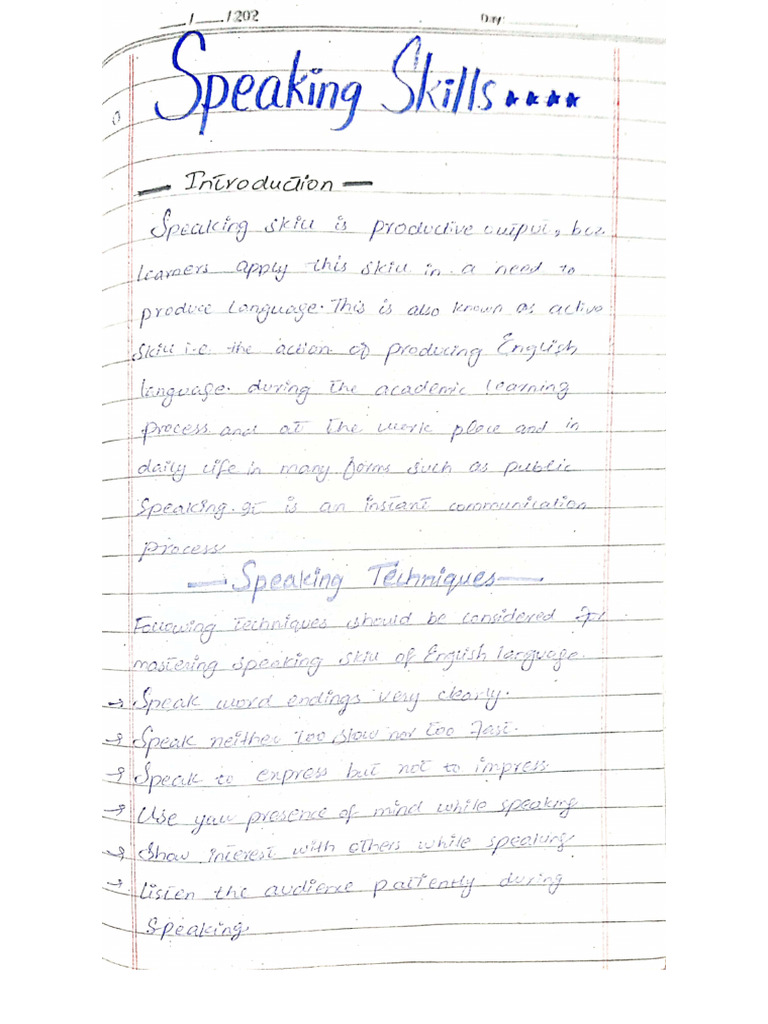 __/__/202 Day:
Speaking Skills ****
— Introduction —
Speaking skill is productive output, bcz
learners apply this skill in a need to
produce language. This is also known as active
skill i.e. the action of producing English
language. during the academic learning
process and at the work place and in
daily life in many forms such as public
speaking. It is an instant communication
process
— Speaking Techniques —
Following techniques should be considered for
mastering speaking skill of English language.
→ Speak word endings very clearly.
→ Speak neither too slow nor too fast.
→ Speak to express but not to impress
→ Use your presence of mind while speaking
→ Show interest with others while speaking
→ Listen the audience patiently during
Speaking.